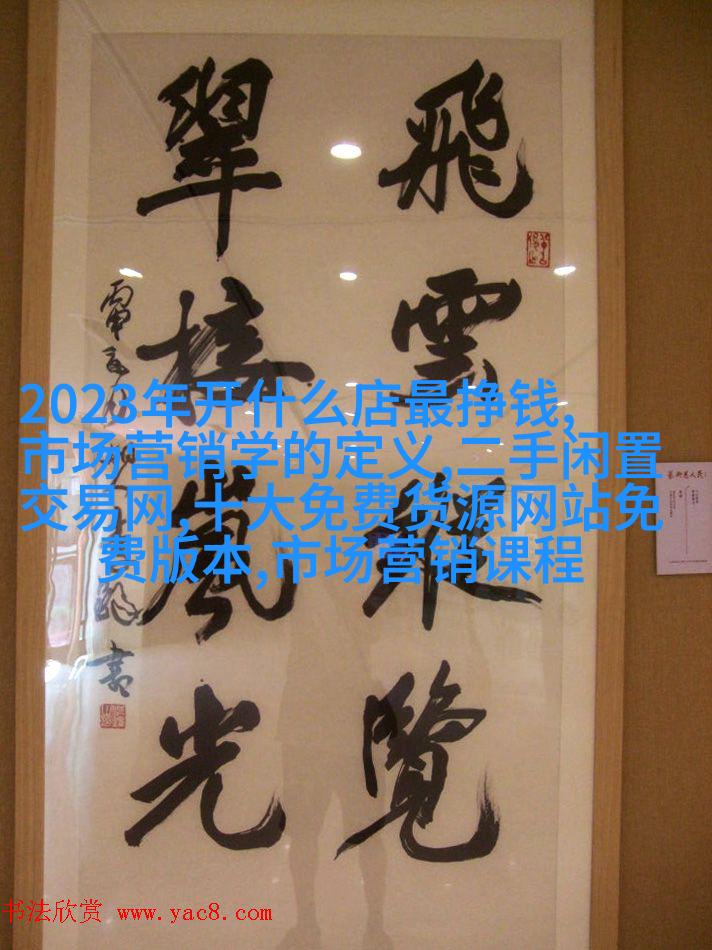 飛雲縱覽
翠接嵐光
書
2023年开什么店最挣钱,
市场营销学的定义,二手闲置
交易网,十大免费货源网站免
费版本,市场营销课程
书法欣赏 www.yac8.com